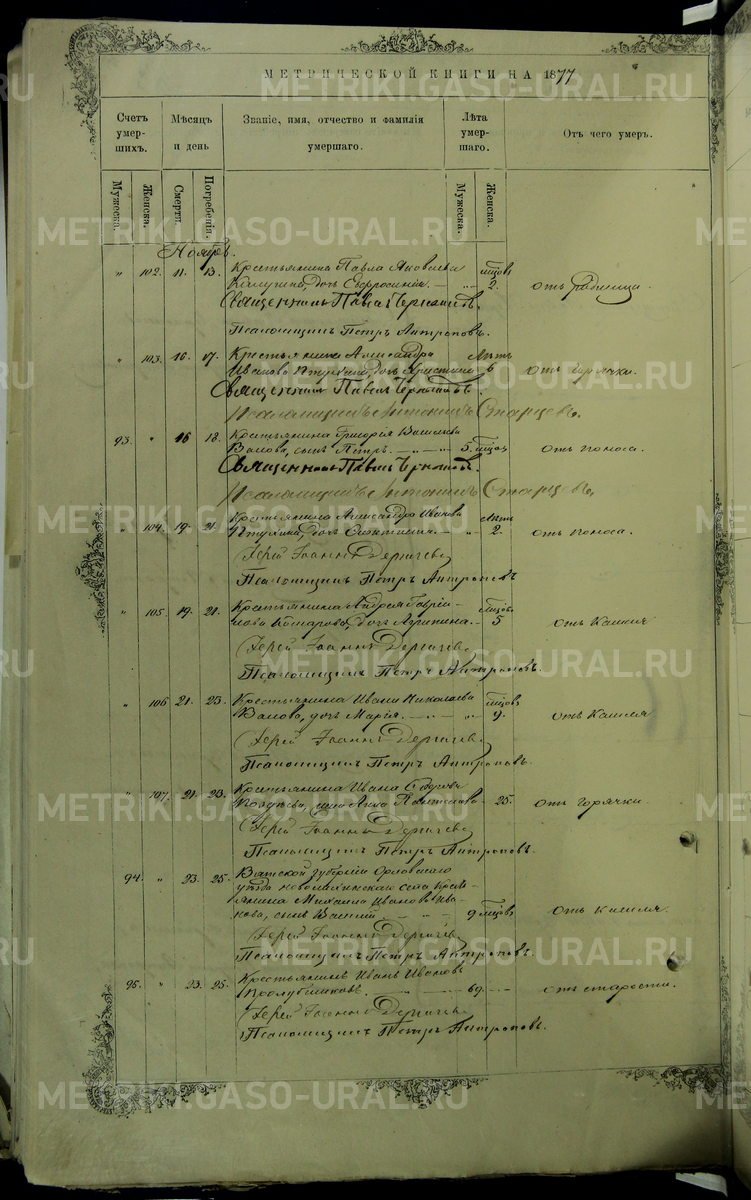 МЕТРИЧЕСКОЙ КНИГИ НА 1877
Счетъ умер-шихъ.
Мѣсяцъ и день
Званіе, имя, отчество и фамилія умершаго.
Лѣта умер-шаго.
Отъ чего умеръ.
Мужеска.
Женска.
Смерти.
Погребенія.
Мужеска.
Женска.
METRIKI.GASO-URAL.RU
Ноябрь.
" 102. 11. 13. Крестьянина Павла Яковлева мѣсяцъ
дочь Евфросинія. — " 2. отъ родимца.
Священникъ Павелъ
Псаломщикъ Петръ Антроповъ.
" 103. 16. 17. Крестьянина Александра Лѣтъ
Иванова дочь 6 отъ горячки.
Священникъ Павелъ
Псаломщикъ Старцевъ.
93. " 16 18. Крестьянина Григорія Васильева
сынъ Петръ. — " — 5. мѣсяц. отъ поноса.
Священникъ Павелъ
Псаломщикъ Старцевъ.
" 104. 19. 21. Крестьянина Александра Иванова Лѣтъ
дочь — " 2. отъ поноса.
Іерей Іоаннъ Дергачевъ
Псаломщикъ Петръ Антроповъ
" 105. 19. 21. Крестьянина Андрея Гаврі- мѣсяц.
лова дочь Агрипина. — 5 отъ Кашля
Іерей Іоаннъ Дергачевъ
Псаломщикъ Петръ Антроповъ.
" 106 21. 23. Крестьянина Ивана Николаева мѣсяц.
дочь Марія. — " — " 9. отъ Кашля
Іерей Іоаннъ Дергачевъ
Псаломщикъ Петръ Антроповъ.
" 107. 21. 23. Крестьянина Ивана
жена Анна 25. отъ горячки.
Іерей Іоаннъ Дергачевъ
Псаломщикъ Петръ Антроповъ.
94. " 23. 25. Вятской губерніи Орловскаго
уѣзда села Крест-
янина Михаила Иванова Ива-
нова, сынъ Василій. — " 9 мѣсяцъ отъ кашля.
Іерей Іоаннъ Дергачевъ
Псаломщикъ Петръ Антроповъ.
95. " 23. 25. Крестьянинъ Иванъ Ивановъ
— " — 69. — отъ старости.
Іерей Іоаннъ Дергачевъ
Псаломщикъ Петръ Антроповъ.